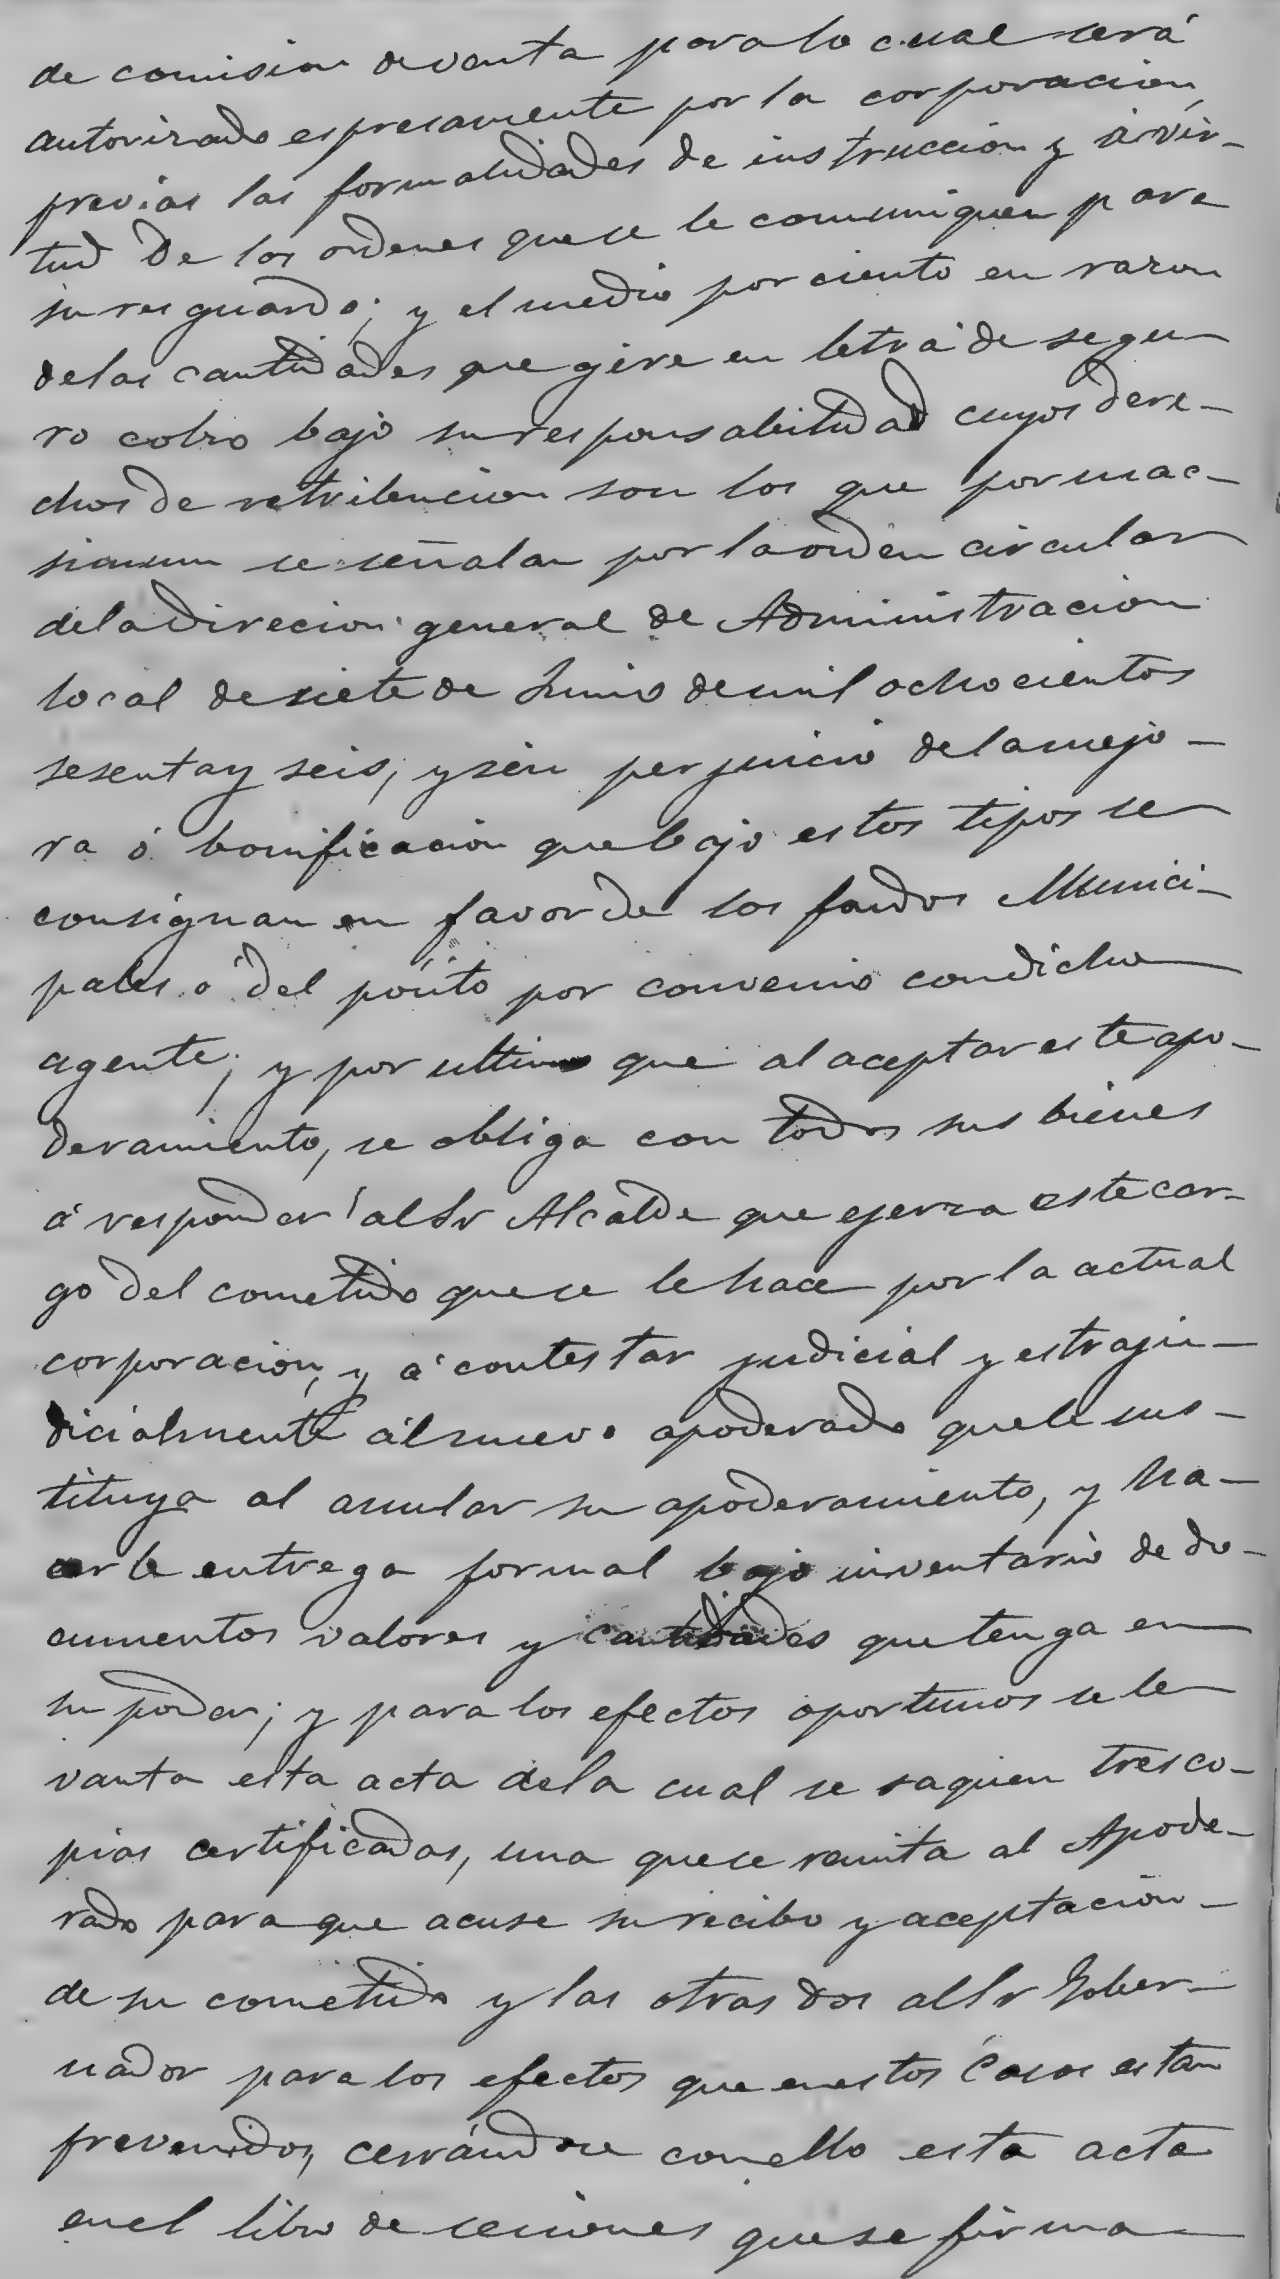 de comision de venta para lo cual será
autorizado espresamente por la corporacion,
previas las formalidades de instruccion y á vir-
tud de las ordenes que se le comuniquen para
su resguardo; y el medio por ciento en razon
de las cantidades que gire en letra de segu-
ro cobro bajo su responsabilidad cuyos dere-
chos de retribucion son los que por mac-
simum se señalan por la orden circular
de la Direcion general de Administracion
local de siete de Junio de mil ochocientos
sesenta y seis, y sin perjuicio de la mejo-
ra ó bonificacion que bajo estos tipos se
consignan en favor de los fondos Munici-
pales ó del pósito por convenio con dicho
agente; y por ultimo que al aceptar este apo-
deramiento, se obliga con todos sus bienes
á responder al Sr Alcalde que ejerza este car-
go del cometido que se le hace por la actual
corporacion, y á contestar judicial y estraju-
dicialmente al nuevo apoderado que le sus-
tituya al anular su apoderamiento, y ha-
cerle entrega formal bajo inventario de do-
cumentos valores y cantidades que tenga en
su poder; y para los efectos oportunos se le
vanta esta acta de la cual se saquen tres co-
pias certificadas, una que se remita al Apode-
rado para que acuse su recibo y aceptacion
de su cometido y las otras dos al Sr Gober-
nador para los efectos que en estos casos estan
prevenidos, cerrándose con ello esta acta
en el libro de sesiones que se firma